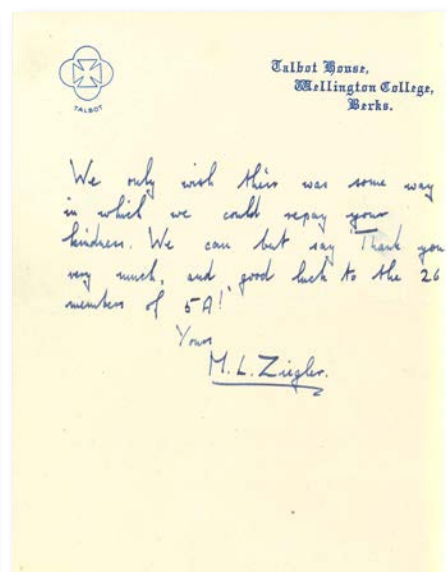 TALBOT
Talbot House,
Wellington College,
Berks.
We only wish their was some way
in which we could repay your
kindness. We can but say 'Thank you
very much, and good luck to the 26
members of 5A!'
Yours
M. L. Ziegler.